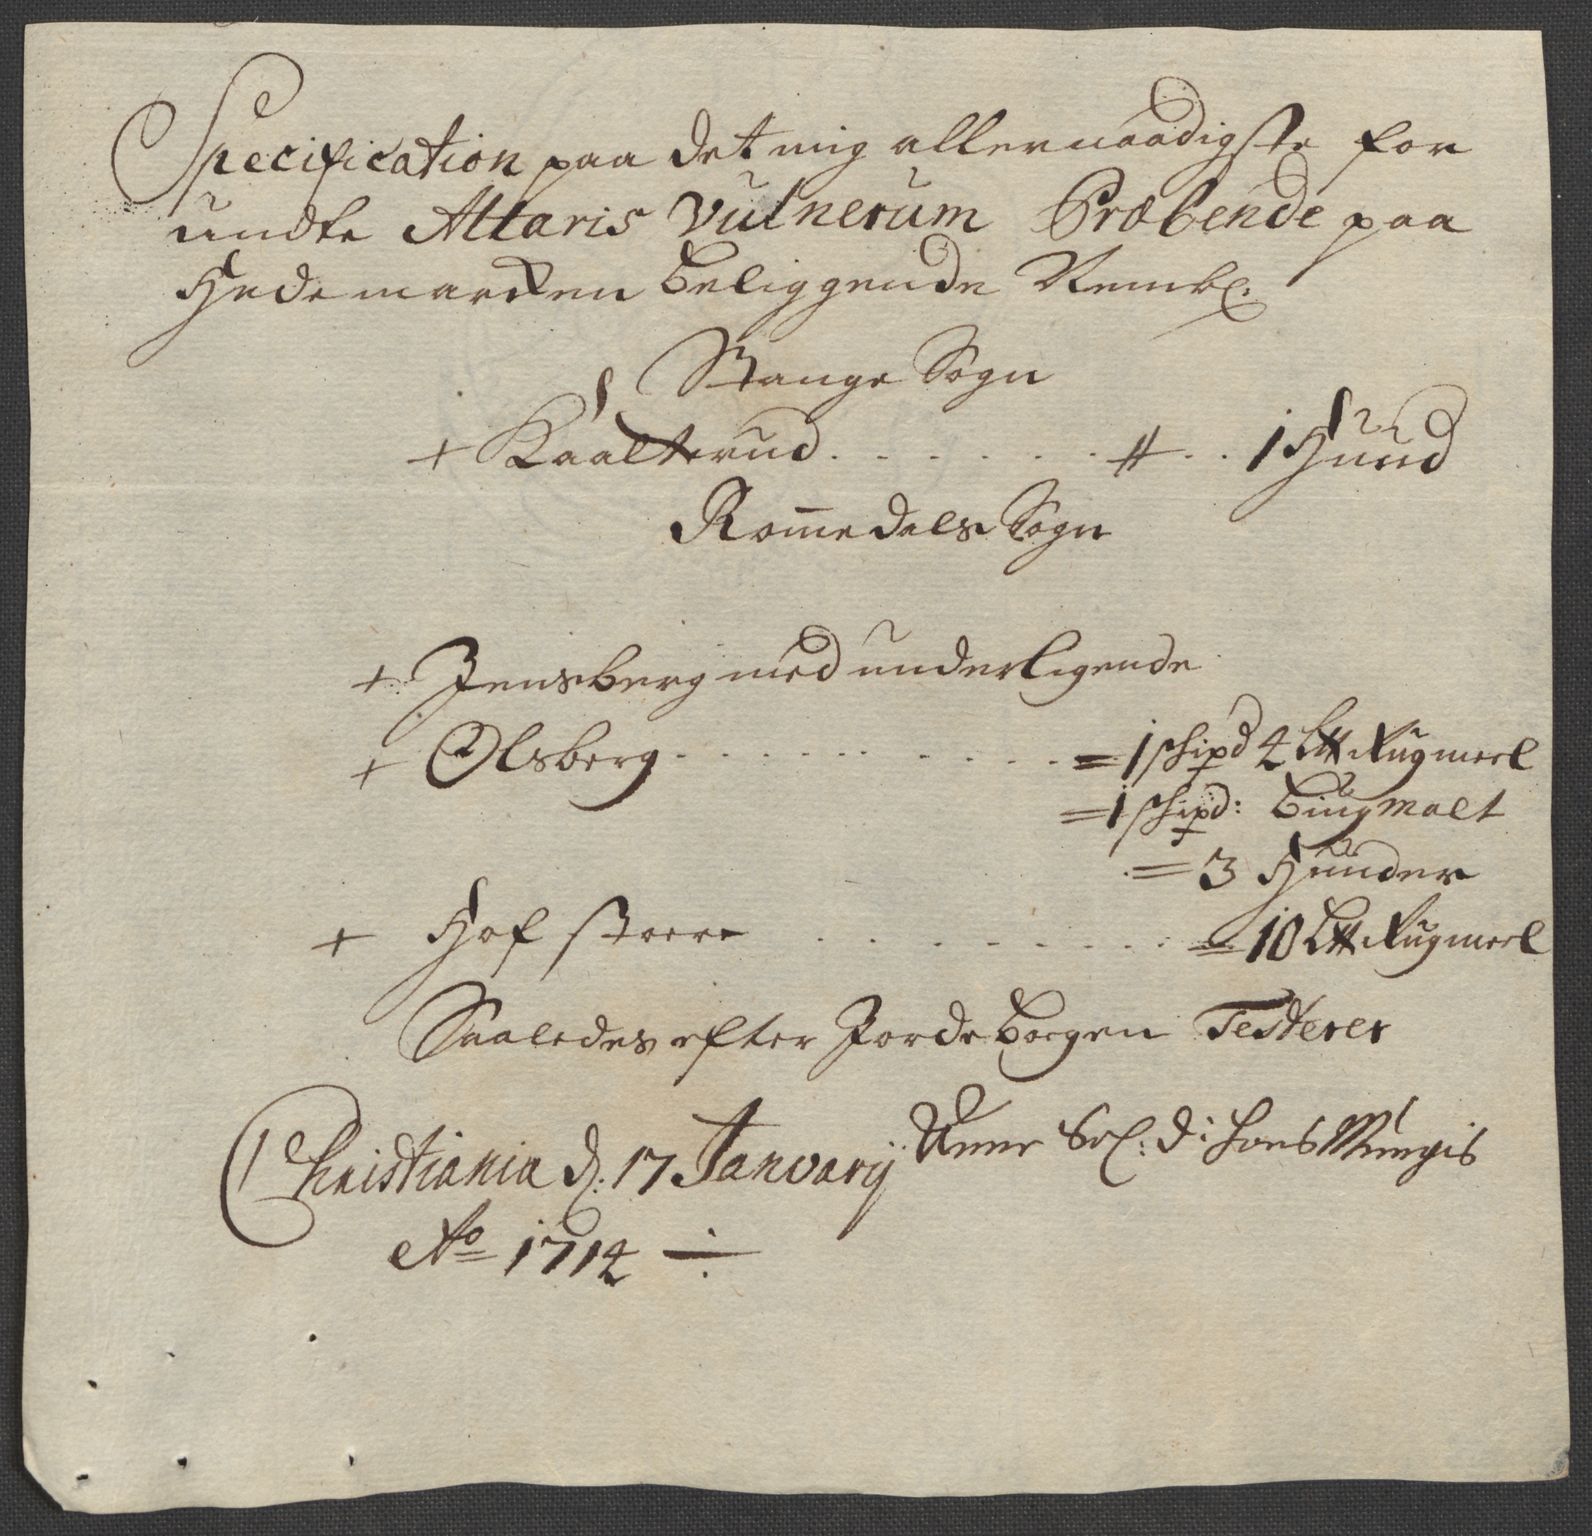 Specification paa det mig allernaadigste for
undte Altaris Vulnerum Præbende paa
Hedemarken beliggende Nembl:
Stange Sogn
+ Kaalterud . . . . . . . # . . 1 Huud
Rom̄edals Sogn
+ Jensberg med underligende
+ Olsberg . . . . . . . . . . = 1 schipd 4 L℔ Rugmeel
= 1 schipd: bÿugmalt
= 3 Huuder
+ Hof store . . . . . . . . . = 10 L℔ Rugmeel
Saaledes efter Jordebogen Testerer
Christiania d: 17 Janvarij Anne Sal:
Ao 1714 ÷